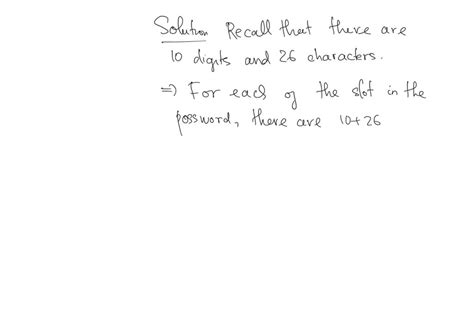 Solution Recall that there are
10 digits and 26 characters.
⇒ For each of the slot in the
password, there are 10+26